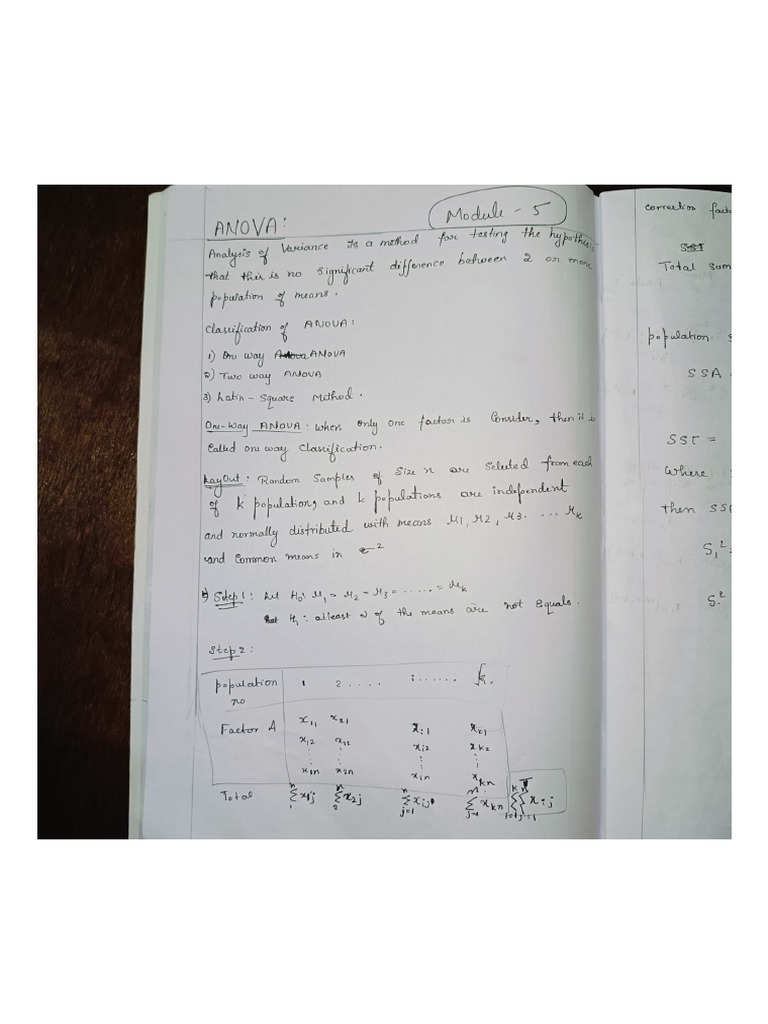 Module - 5
ANOVA:
Analysis of Variance Is a method for testing the hypothesis
that this is no significant difference between 2 or more
population of means.
Classification of ANOVA:
1) One way ANOVA
2) Two way ANOVA
3) Latin - Square Method.
One-Way ANOVA: when only one factor is Consider, then it is
Called one way Classification.
LayOut: Random Samples of Size n are Selected from each
of k populations and k populations are independent
and normally distributed with means μ1, μ2, μ3. ... μk
and Common means in σ²
Step 1: Let H₀: μ₁ = μ₂ = μ₃ = ...... = μk
H₁: atleast 2 of the means are not Equals.
Step 2:
population 1 2 .... i ...... k.
no
Factor A x₁₁ x₂₁ xi1 xk1
x₁₂ xi2 xk2
⋮ ⋮ ⋮ ⋮
x1n x2n xin xkn
Total Σ x1j Σ x2j Σ xij Σ xkn ΣΣ xij
correction
SST
Total Sum
population
SSA =
SST =
Where
then
S₁² =